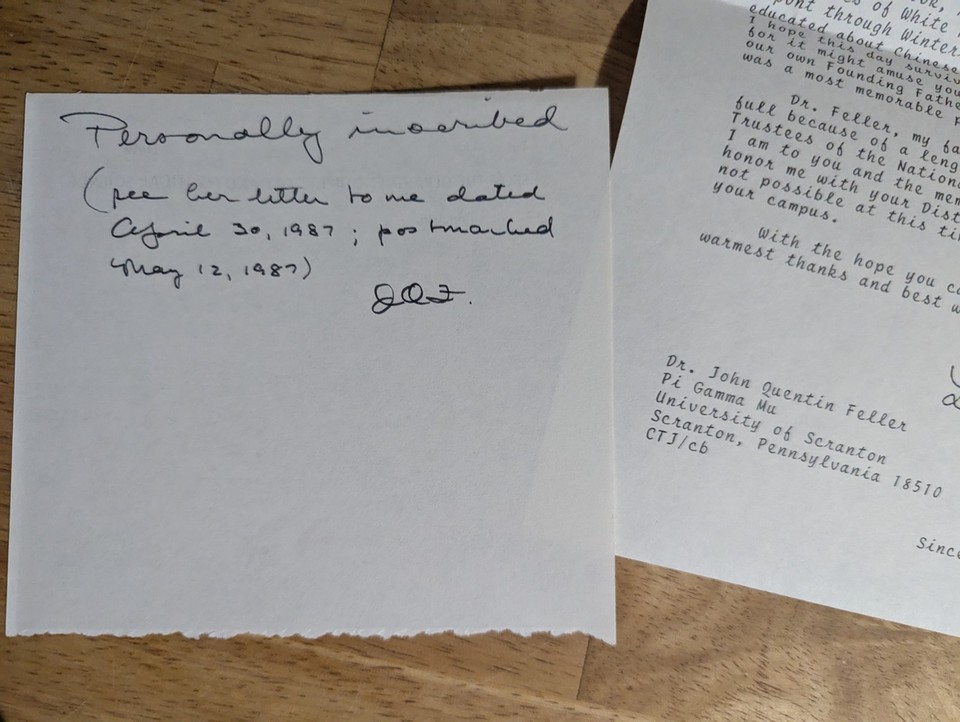 Personally inscribed
(see her letter to me dated
April 30, 1987; postmarked
May 12, 1987)
JQF.
of White
through Winter
educated about Chinese
I hope this day surviv
for it might amuse you
our own Founding Fathe
was a most memorable
Dr. Feller, my fa
full because of a leng
Trustees of the Nationa
I am to you and the mem
honor me with your Dist
not possible at this ti
your campus.
With the hope you ca
warmest thanks and best w
Dr. John Quentin Feller
Pi Gamma Mu
University of Scranton
Scranton, Pennsylvania 18510
CTJ/cb
Since